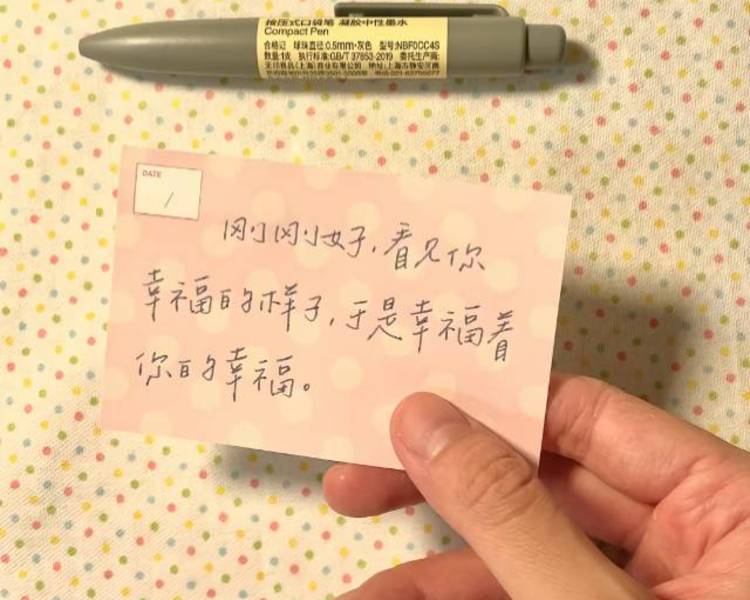 按压式口袋笔 凝胶中性墨水
Compact Pen
合格记 球珠直径:0.5mm·灰色 型号:NBF0CC4S
数量:1支 执行标准:GB/T 37853-2019 委托生产商:
DATE
/
刚刚好,看见你
幸福的样子,于是幸福着
你的幸福。